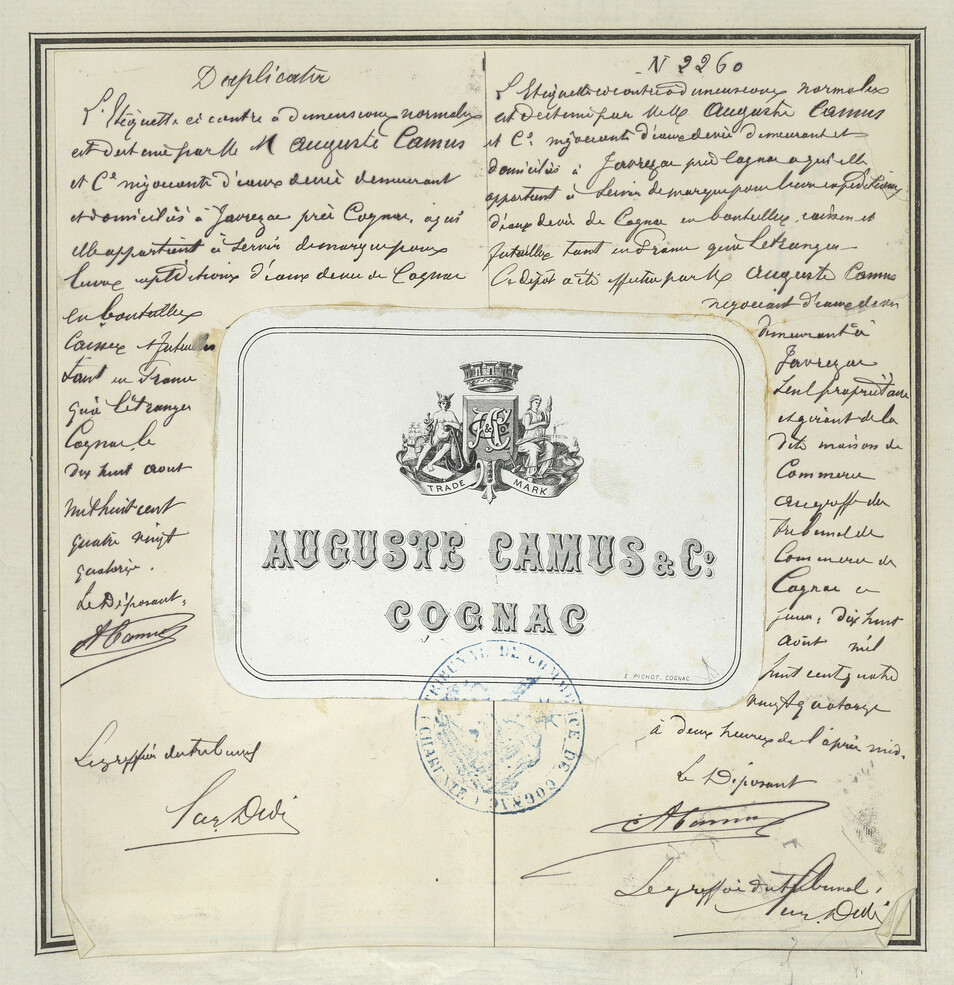 Duplicata
L'Etiquette ci contre à dimensions normales
est destinée par M Auguste Camus
et Cie négociants d'eaux de vie demeurant
et domiciliés à Javrezac près Cognac, à qui
elle appartient à servir de marque pour
leurs expéditions d'eaux de vie de Cognac
en bouteilles
caisses et futailles
tant en France
qu'à l'étranger
Cognac le
dix huit août
mil huit cent
quatre vingt
quatorze.
Le Déposant,
ACamus
Le greffier du tribunal
N 2260
L'Etiquette ci contre à dimensions normales
est destinée par MM Auguste Camus
et Co négociants d'eaux de vie demeurant et
domiciliés à Javrezac près Cognac à qui elle
appartient à servir de marque pour leurs expéditions
d'eaux de vie de Cognac en bouteilles, caisses et
futailles tant en France qu'à l'étranger
Ce dépôt a été effectué par M Auguste Camus
négociant d'eaux de vie
demeurant à
Javrezac
seul propriétaire
et gérant de la
dite maison de
Commerce
au greffe du
tribunal de
Commerce de
Cognac ce
jour, dix huit
août mil
huit cent quatre
vingt quatorze
à deux heures de l'après midi.
Le Déposant
ACamus
Le greffier du tribunal,
A&C
TRADE MARK
AUGUSTE CAMUS & Co.
COGNAC
E. PICHOT, COGNAC
TRIBUNAL DE COMMERCE DE COGNAC
(CHARENTE)